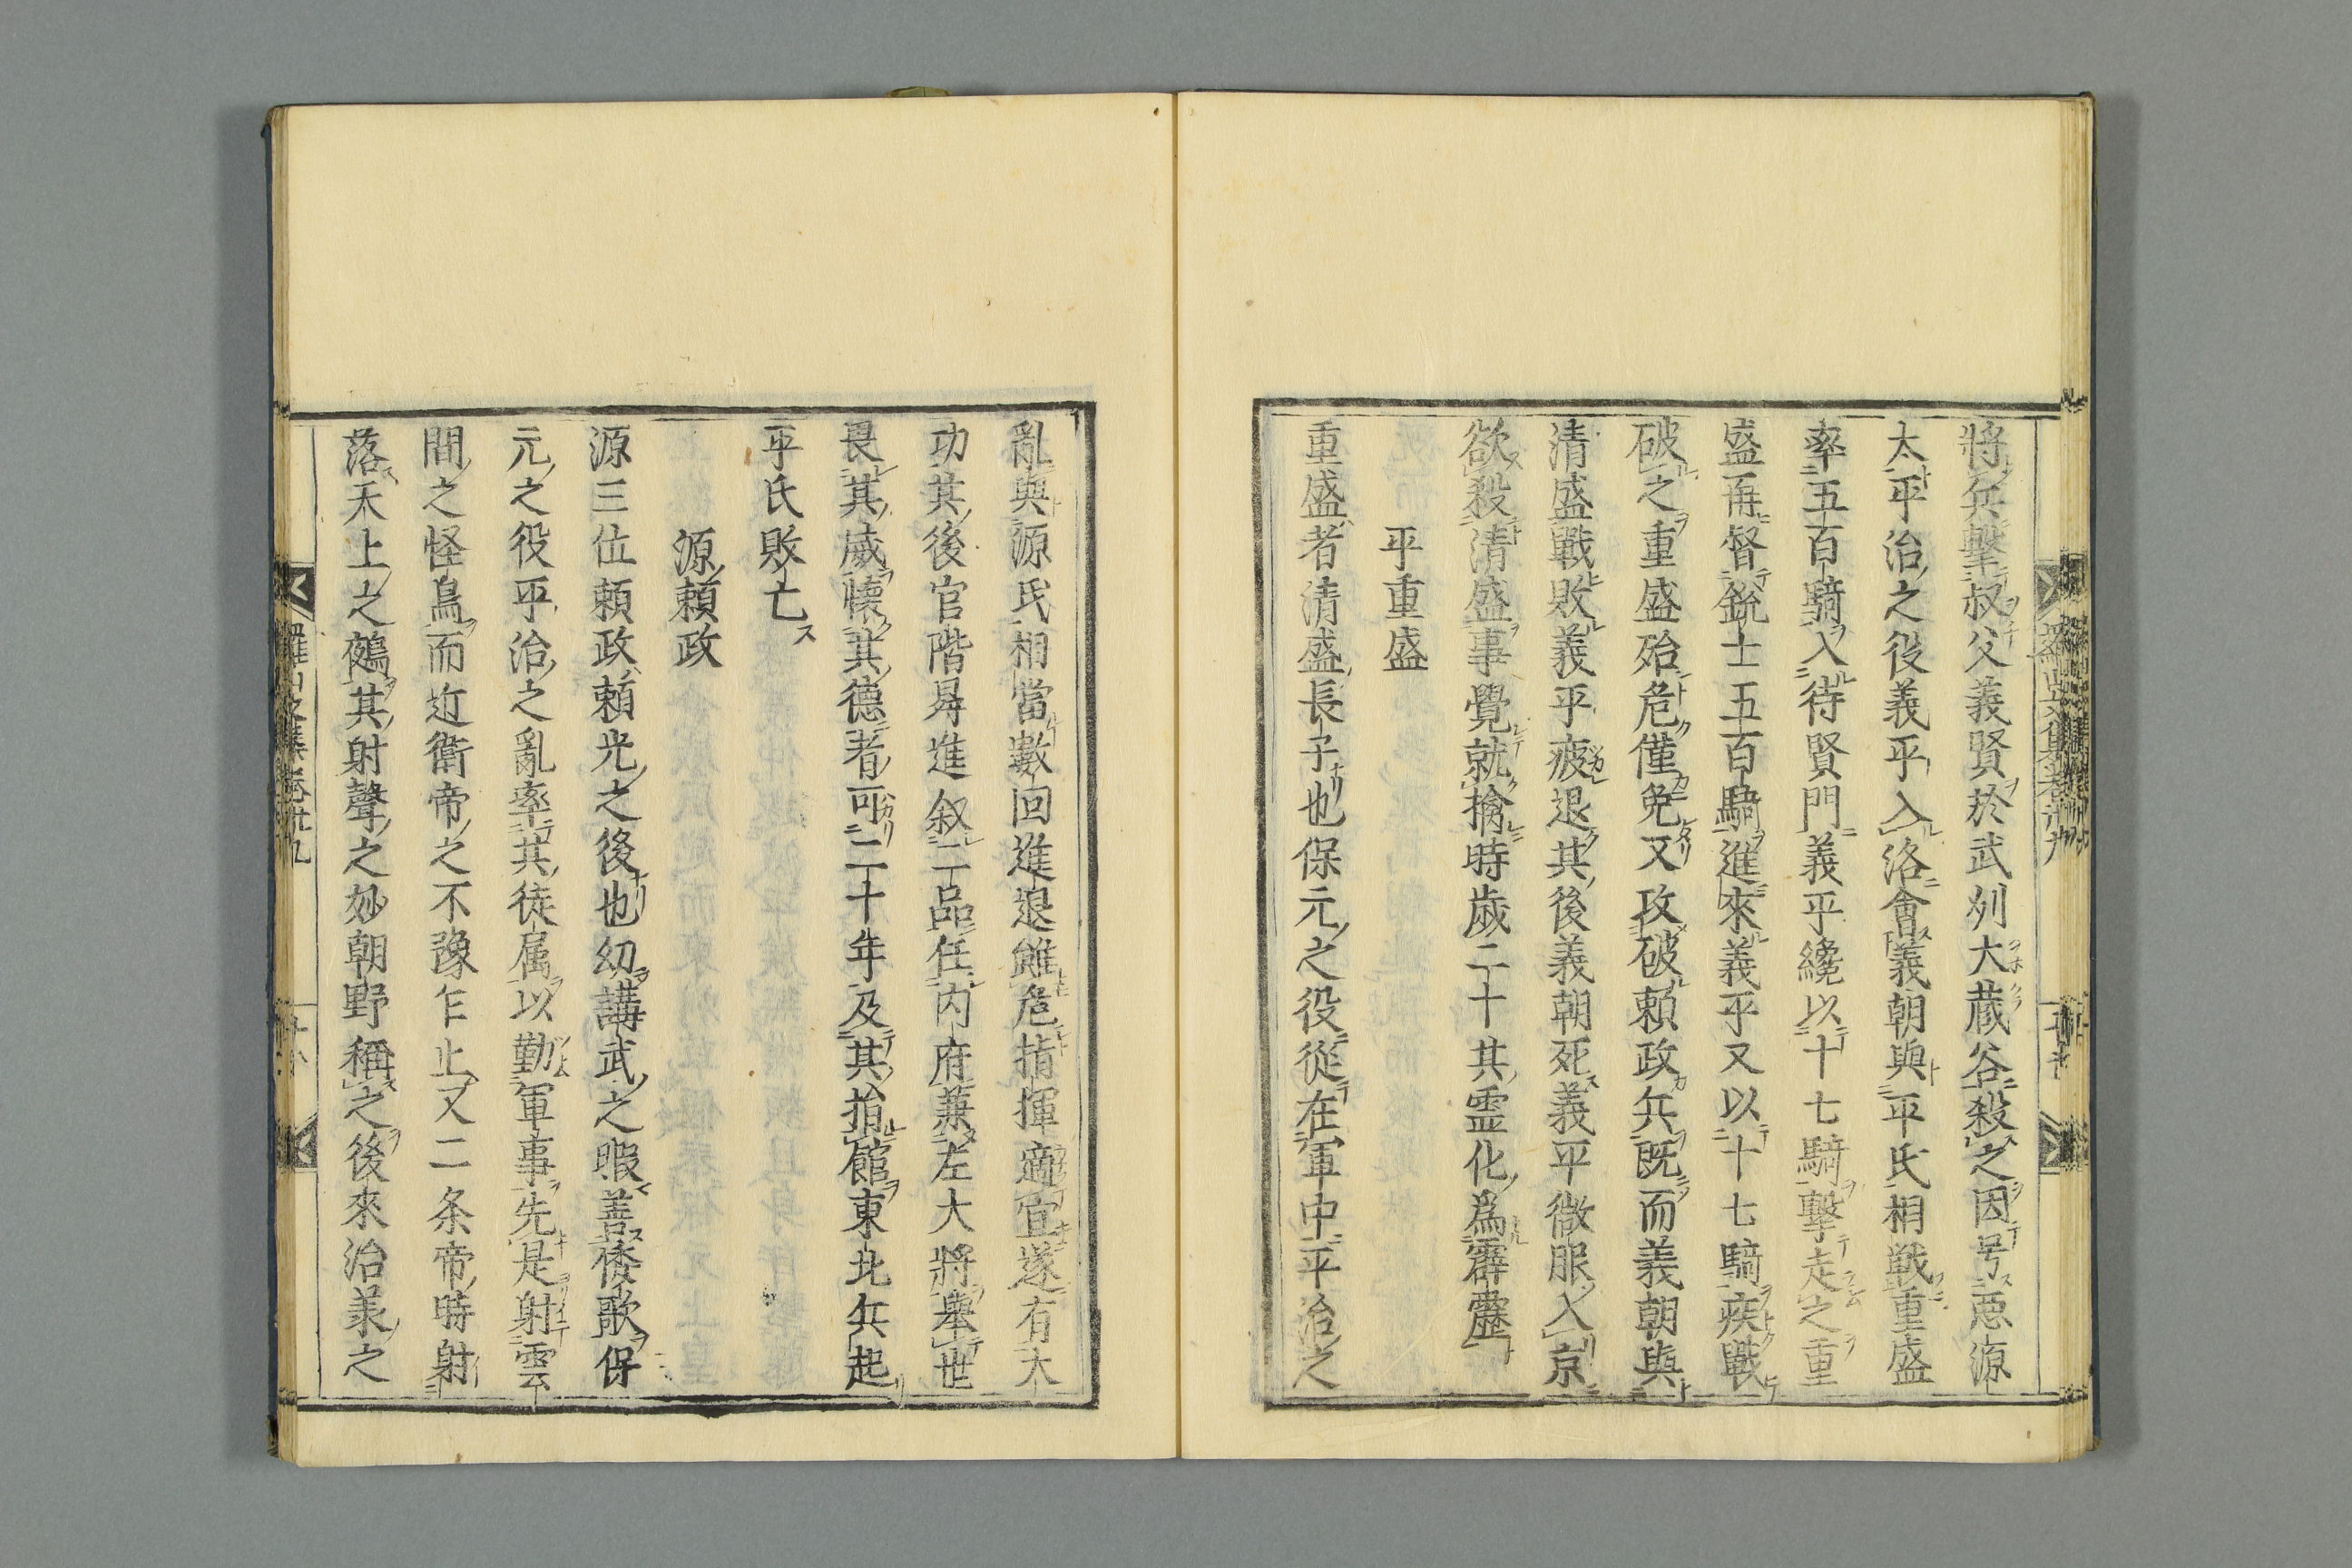 將兵擊叔父義賢於武刕大藏谷殺之因号惡源
太平治之役義平入洛會義朝與平氏相戰重盛
率五百騎入待賢門義平纔以十七騎擊走之重
盛再督銳士五百騎進來義平又以十七騎疾戰
破之重盛殆危僅免又攻破賴政兵既而義朝與
清盛戰敗義平疲退其後義朝死義平微服入京
欲殺清盛事覺就擒時歲二十其霊化爲霹靂
平重盛
重盛者清盛長子也保元之役從在軍中平治之
亂與源氏相當數回進退雖危指揮適宜遂有大
功其後官階昇進叙二品任内府兼左大將舉世
畏其威懷其德者可二十年及其捐館東北兵起
平氏敗亡
源賴政
源三位賴政賴光之後也幼講武之暇善倭歌保
元之役平治之亂率其徒属以勤軍事先是射雲
間之怪鳥而近衛帝之不豫乍止又二条帝時射
落天上之鵺其射聲之妙朝野稱之後來治承之
羅山文集卷卅九